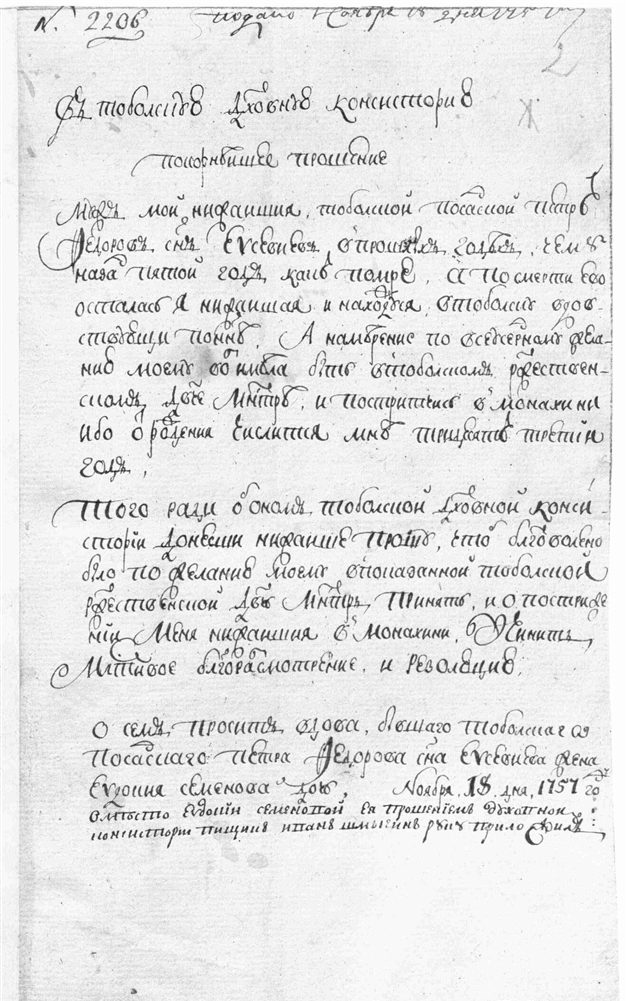 № 2206 подано ноября 18 дня 1757
2
Въ тоболскую духовную консисторию
покорнѣйшее прошение
Мужъ мой нижаишия, тоболской посацкой петръ
Ѳедоровъ снъ Еусевиевъ, в прошлыхъ годѣхъ, чему
назадъ пятой годъ какъ помре, А по смерти ево
осталась Я нижаишая и нахожуся, в тоболску вдов-
ствующи понынѣ, А намѣрение по всеусерному жела-
нию моему возимѣла быть в тоболскомъ рождественс-
комъ двчье мнтрѣ, и постритчись в монахини
ибо ѿ рождения числится мнѣ тридцать третiи
годъ,
Того ради о ономъ тоболской духовной конси-
сторiи донесши нижаише прошу, чтоб блговолено
было по желанию моему в показанной тоболской
рждественской двчь мнтрь принять, и о постриже-
нiи меня нижаишия в монахини, Учинить
Млтивое блгоразсмотрение, и резолюцию,
О семъ проситъ вдова, бывшаго тоболскаго
посацкаго петра Ѳедорова сна Еусевиева жена
Еудокия семенова дочь, Ноября, 18, дня, 1757 го
вмѣсто евдокiи семеновой ея прошениемъ духовной
консисторiи пищикъ иванъ шмыгинъ руку приложилъ